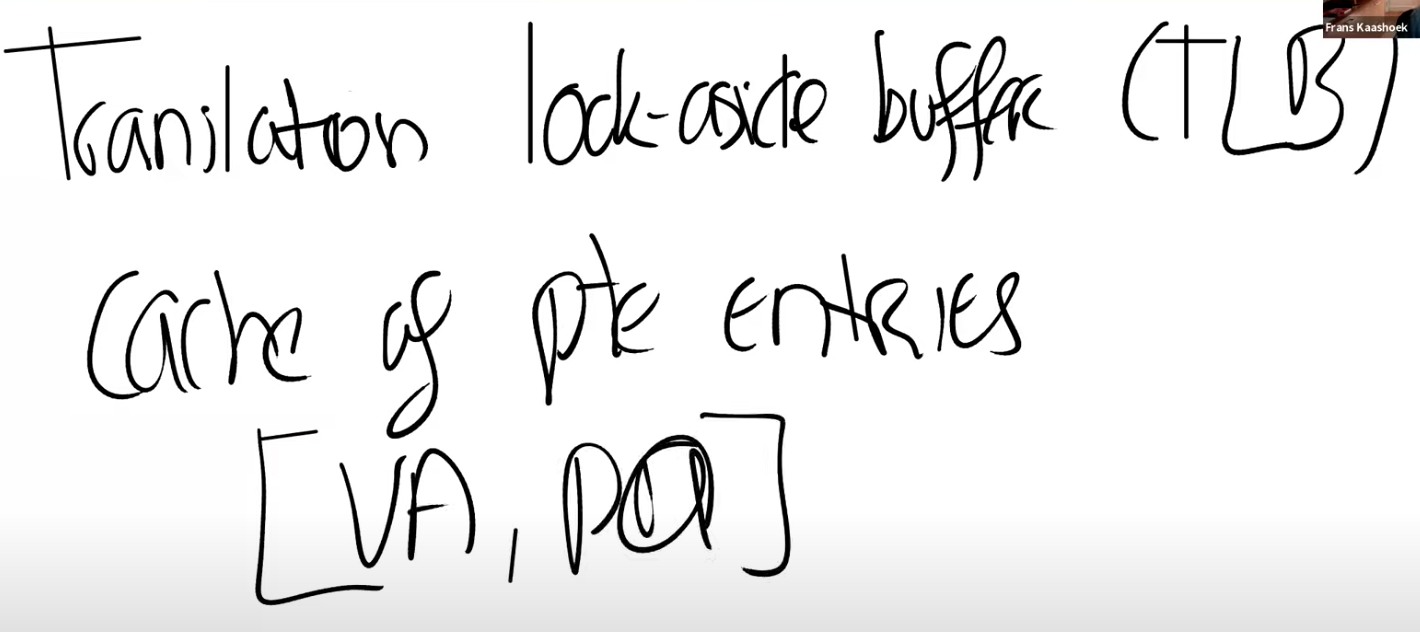 Frans Kaashoek
Translation look-aside buffer (TLB)
cache of pte entries
[VA, PA]